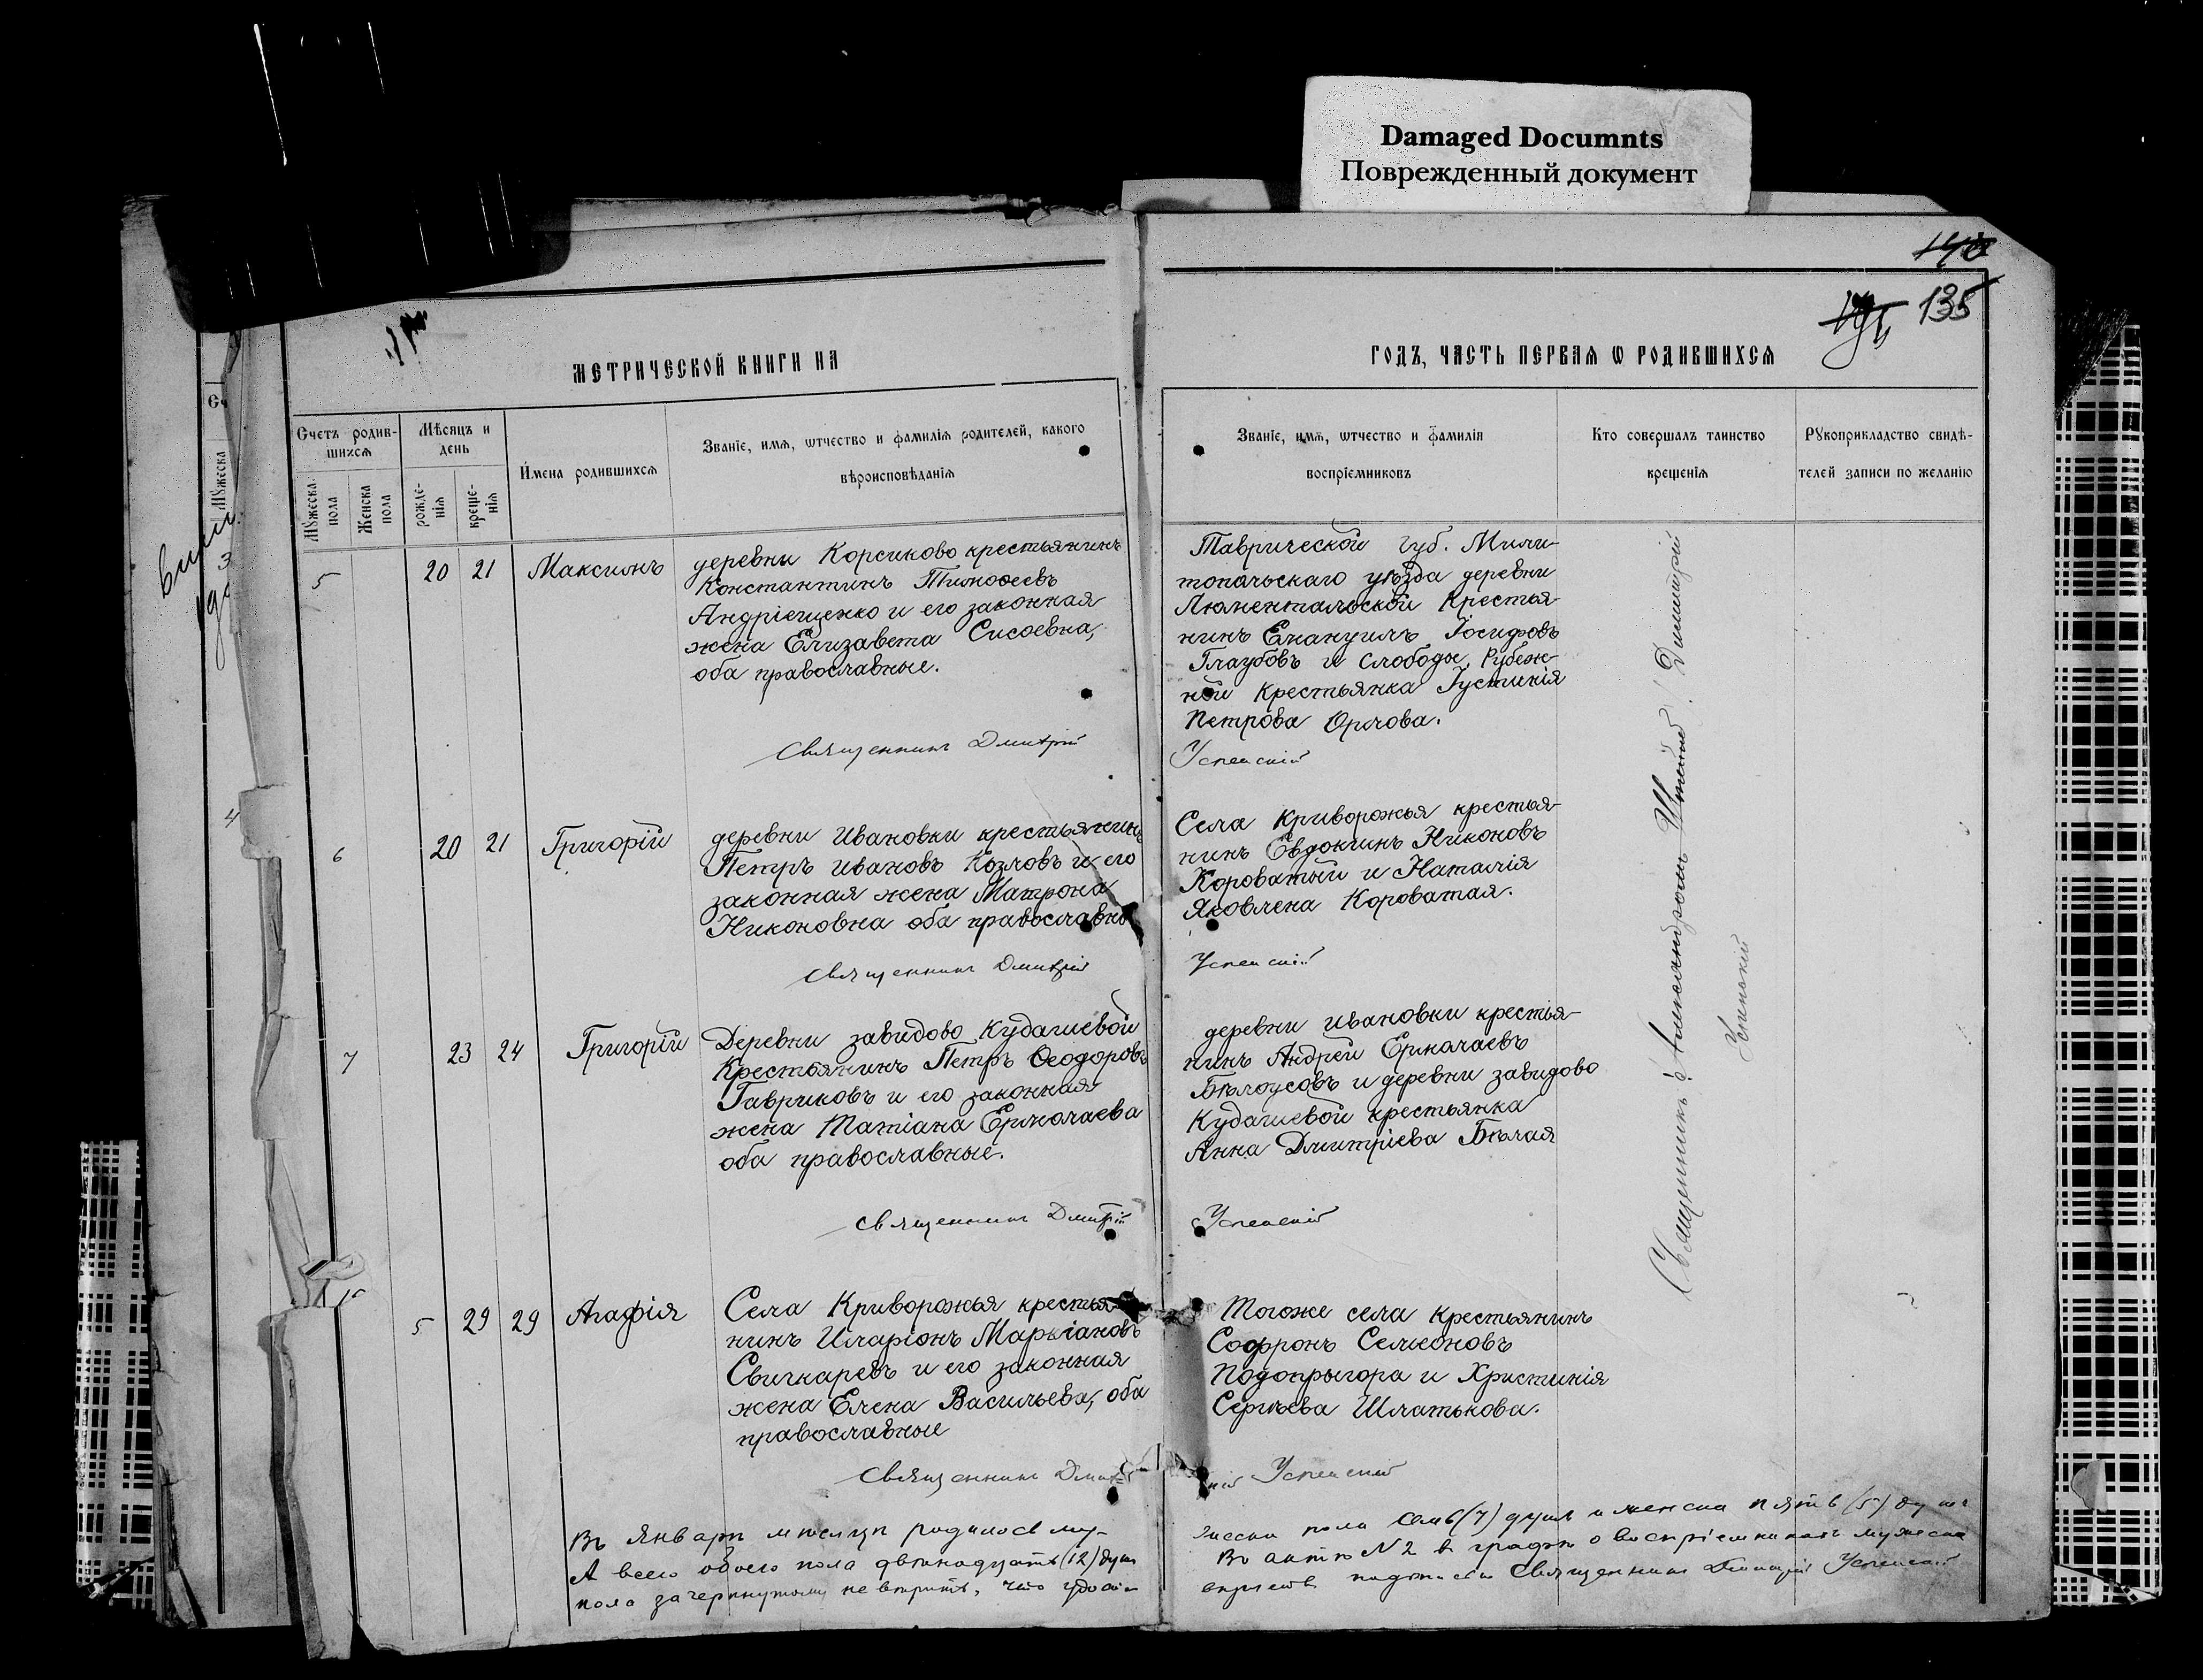 Damaged Documnts
Поврежденный документ
135
МЕТРИЧЕСКОЙ КНИГИ НА
ГОДЪ, ЧАСТЬ ПЕРВАЯ Ѡ РОДИВШИХСѦ
Счетъ родив-
шихсѧ
Мѣсяцъ и
день
Имена родившихсѧ
Званіе, имѧ, ѡтчество и фамиліѧ родителей, какого
вѣроисповѣданіѧ
Мꙋжеска
пола
Женска
пола
рожде-
ніѧ
креще-
ніѧ
Званіе, имѧ, ѡтчество и фамиліѧ
воспріемниковъ
Кто совершалъ таинство
крещеніѧ
Рꙋкоприкладство свидѣ-
телей записи по желанію
5 20 21 Максимъ
деревни Корсиково крестьянинъ
Константинъ Тимоѳеевъ
Андріещенко и его законная
жена Елизавета Сисоевна,
оба православные.
Таврической губ. Мили-
топольскаго уѣзда деревни
Люментальской Крестья-
нинъ Емануилъ Іосифовъ
Глаубовъ и Слободы Рубеж-
ной крестьянка Іустинія
Петрова Орлова.
Священникъ Дмитрій
Успенскій
6 20 21 Григорій
деревни Ивановки крестьянинъ
Петръ Ивановъ Козловъ и его
законная жена Матрона
Никоновна оба православны
Села Криворожья крестья-
нинъ Евдокимъ Никоновъ
Короватый и Наталія
Яковлена Короватая.
Священникъ Дмитрій
Успенскій
7 23 24 Григорій
Деревни завидово Кудашевой
Крестьянинъ Петръ Ѳеодоровъ
Гавриковъ и его законная
жена Татіана Ермолаева
оба православные.
деревни Ивановки крестья-
нинъ Андрей Ермолаевъ
Бѣлоусовъ и деревни завидово
Кудашевой крестьянка
Анна Дмитріева Бѣлая
Священникъ Дмитрій
Успенскій
5 29 29 Агафія
Села Криворожья крестья-
нинъ Иларіонъ Маркіановъ
Свинаревъ и его законная
жена Елена Васильева, оба
православные
Тогоже села крестьянинъ
Софронъ Семеоновъ
Подопрыгора и Христинія
Сергѣева Шлатькова.
Священникъ
Успенскій
Священникъ Дмитрій
Успенскій
Въ Январѣ мѣсяцѣ родилось му-
жеска пола семь (7) душъ и женска пять (5) душъ
А всего обоего пола двѣнадцать (12) душъ
Въ актѣ № 2 въ графѣ о воспріемникахъ мужеска
пола зачеркнутому не вѣрить, что
подписью Священникъ Дмитрій Успенскій